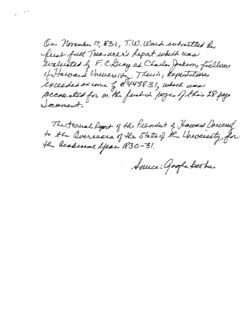 On November 17, 1831, T.W. Ward submitted his
first full Treasurer's Report which was
evaluated by F.C. Gray and Charles Jackson, fellows
of Harvard University. Therein, Expenditures
exceeded income by $4438.31, which was
accounted for on the first pages of this 28 page
document.
The Annual Report of the President of Harvard University
to the Overseers of the State of the University for
the Academic Year 1830-31.
Source: Google Books